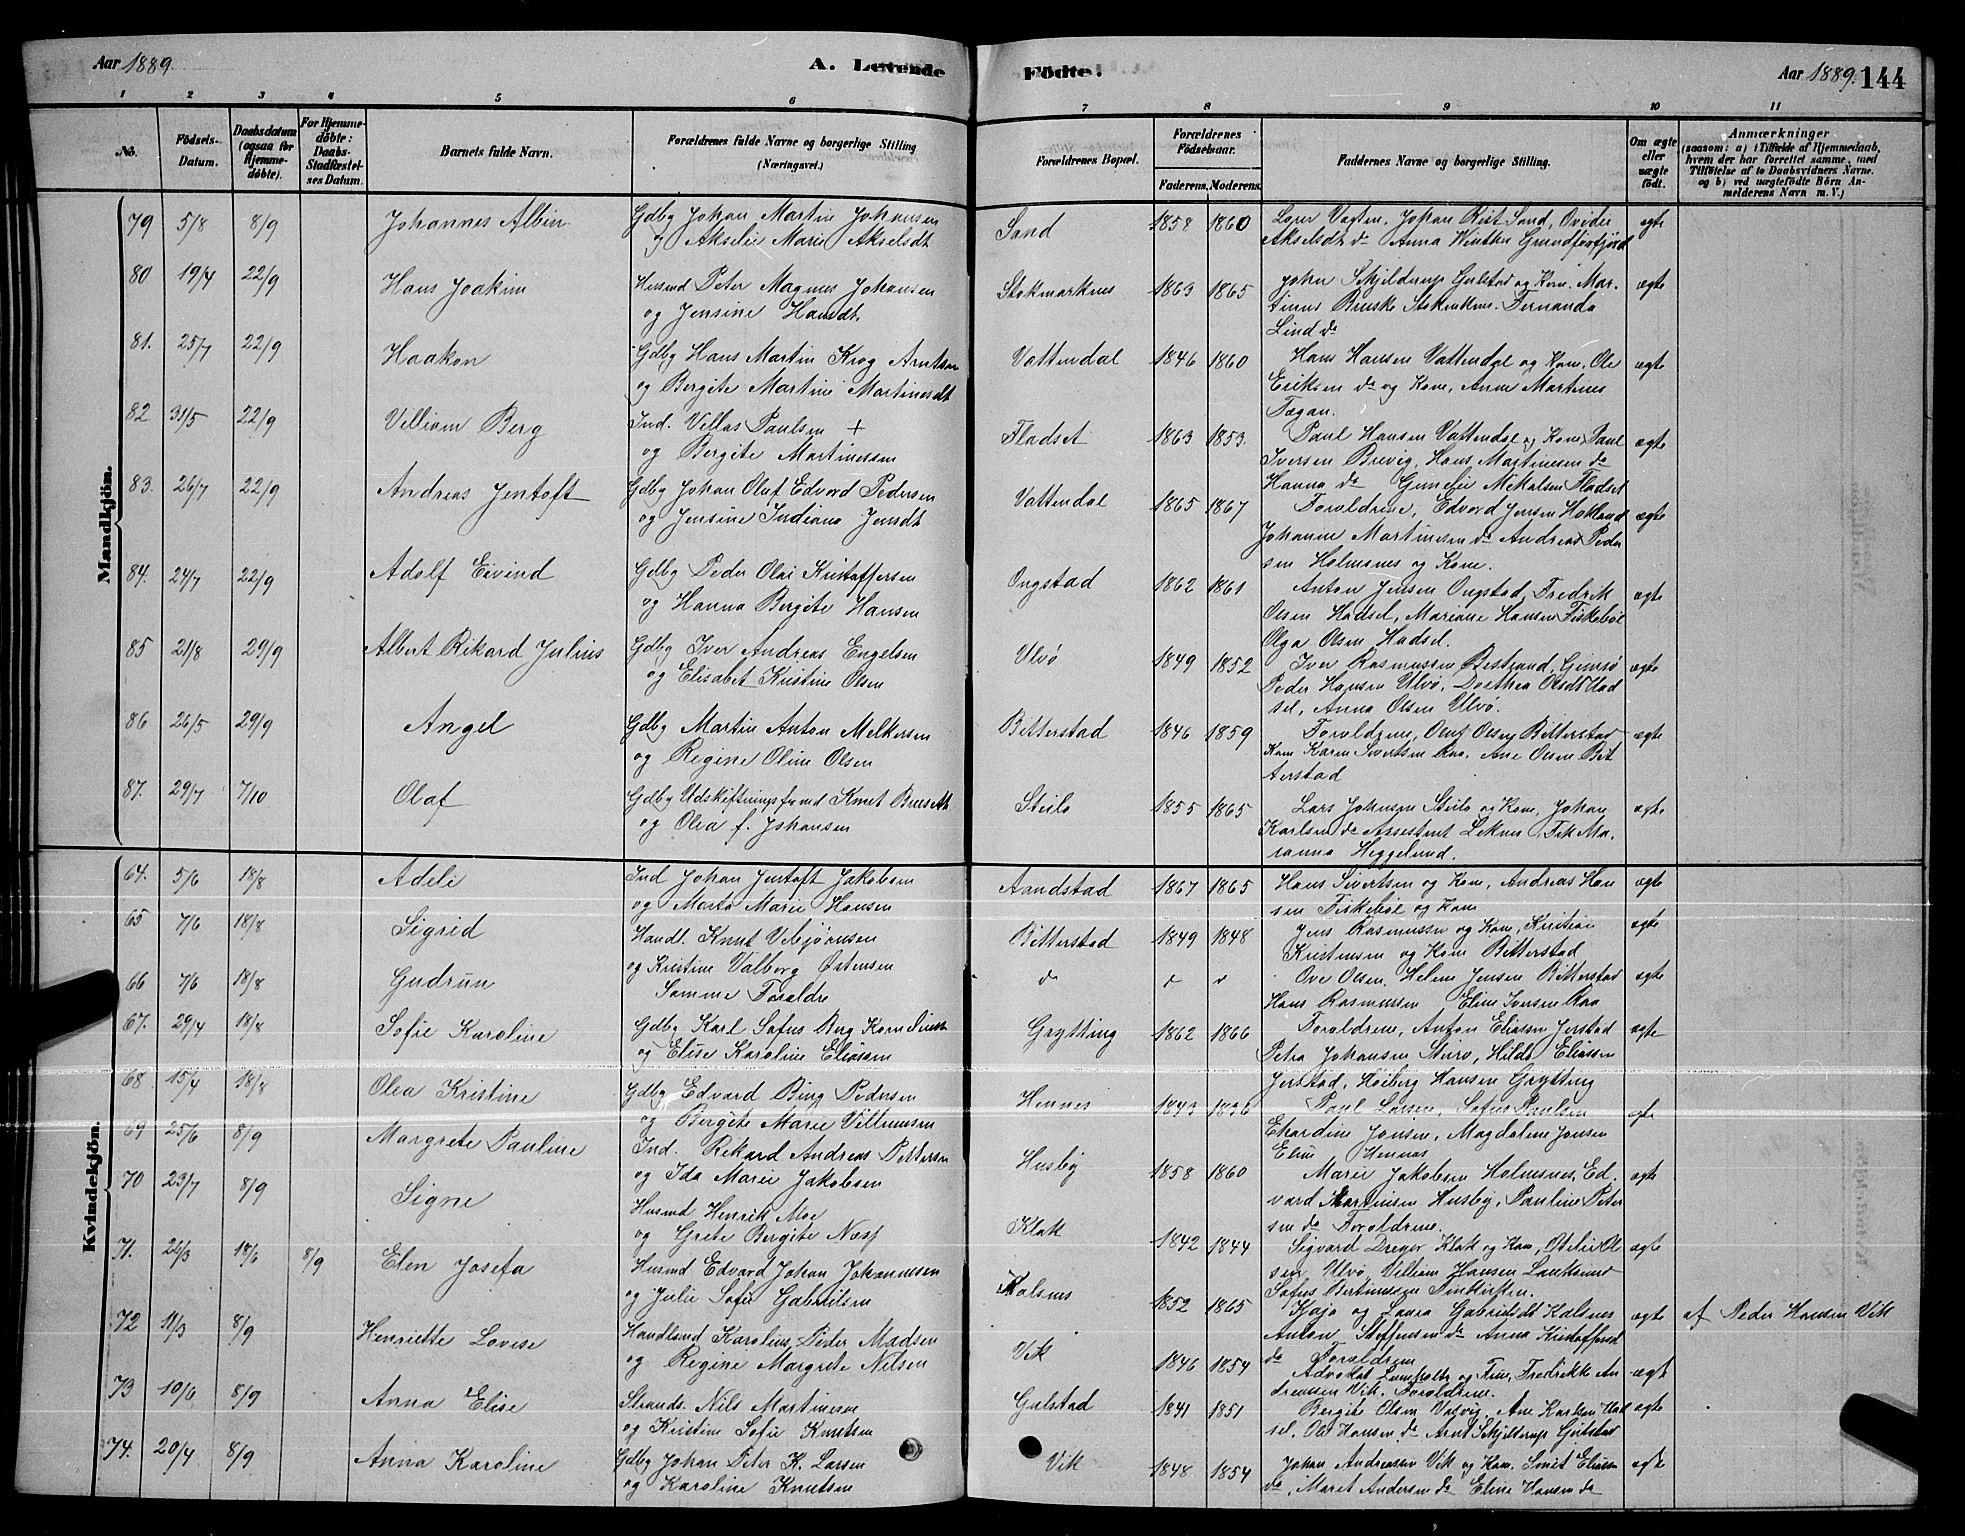 Aar 1889. A. Levende Födte. Aar 1889. 144
1 2 3 4 5 6 7 8 9 10 11
No. Födsels-Datum. Daabsdatum (ogsaa for Hjemmedøbte). For Hjemmedøbte: Daabs-Stadfæstelses Datum. Barnets fulde Navn. Forældrenes fulde Navne og borgerlige Stilling (Næringsvei.) Forældrenes Bopæl. Forældrenes Födselsaar. Faderens. Moderens. Faddernes Navne og borgerlige Stilling. Om ægte eller uægte födt. Anmærkninger (saasom: a) i Tilfælde af Hjemmedaab, hvem der har forrettet samme, med Tilföielse af to Daabsvidners Navne. og b) ved uægtefödte Börn Anmelderens Navn m. V.)
Mandkjön.
79 5/8 8/9 Johannes Albin Gdbg Johan Martin Johansen Sand 1858 1860 Johan Rist Sand, Ovidie ægte
og Akselie Marie Akselsdt Akselsdt do Anna Winther Grundførfjord
80 19/4 22/9 Hans Joakim Husmd Peter Magnus Johansen Stokmarknes 1863 1865 Johan Skjilderup Gulstad og Kone. Mar- ægte
og Jensine Hansdt. tinus Stokmknes. Fernanda
Lind do
81. 25/7 22/9 Haakon Gdbg Hans Martin Krog Arntsen Vattendal 1846 1860 Hans Hansen Vattendal og Kone, Ole ægte
og Bergite Martine Martinesdt Eriksen do og Kone, Anne Martines
Tægan.
82 31/5 22/9 Villiam Berg Ind. Villas Paulsen + Fladset 1863 1853. Paul Hansen Vattendal og Kone Paul ægte
og Bergite Martinessen Iversen Brevig, Hans Martinesen do
Hanna do Mikalsen Fladset
83. 26/7 22/9 Andreas Jentoft Gdbg Johan Olaf Edvard Pedersen Vattendal 1865 1867 Foraldrene, Edvard Jensen Hokland ægte
og Jensine Indiana Jensdt Johanne Martinesen do Andreas Peder
sen Holmsnes og Kone.
84. 24/7 22/9 Adolf Eivind Gdbg Peder Olai Kristoffersen Ongstad 1862 1861 Anton Jensen Ongstad, Fredrik ægte
og Hanna Bergite Hansen Olsen Hadsel, Mariane Hansen Fiskebøl
Olga Olsen Hadsel.
85 21/8 29/9 Albert Rikard Julius Gdbg Iver Andreas Engelsen Ulvø 1849 1852 Iver Rasmussen Bestrand, Gimsø ægte
og Elisabet Kristine Olsen Peder Hansen Ulvø, Dorthea Olsdt Had
sel, Anna Olsen Ulvø.
86 26/5 29/9 Angel Gdbg Martin Anton Melkersen Bitterstad 1846 1859 Foraldrene, Oluf Olsen Bitterstad ægte
og Regine Oline Olsen Kone Karen Sivertsen Raa. Ane Olsen Bit
terstad
87. 29/7 7/10 Olaf Gdbg Udskiftningsfmd Knut Steilo 1855 1865 Lars Johnsen Steilo og Kone, Johan ægte
og Olea f. Johansen Karlsen do Assistent Frk Ma.
rianna Heggelund.
Kvindekjön.
64. 5/6 18/8 Adele Ind Johan Jentoft Jakobsen Aandstad 1867 1865 Hans Sivertsen og Kone, Andreas Han ægte
og Marta Marie Hansen sen Fiskebøl og Kone
65 7/6 18/8 Sigrid Handl. Knut Vebjørnsen Bitterstad 1849 1848 Jens Rasmussen og Kone, Kristian ægte
og Kristine Valborg Østensen Kristensen og Kone Bitterstad
66 7/6 18/8 Gudrun Samme Foraldre do do do Ove Olsen, Helene Jensen Bitterstad ægte
Hans Rasmussen Eline Iversen Raa
67. 29/4 18/8 Sofie Karoline Gdbg Karl Sofus Berg Grytting 1862 1866 Foraldrene, Anton Eliassen Jerstad ægte
og Elise Karoline Eliassen Petra Johansen Hilda Eliassen
Jerstad, Høiberg Hansen Grytting
68. 15/4 18/8 Olea Kristine Gdbg Edvard Bing Pedersen Hennes 1843 1836 Paul Larsen, Sofus Paulsen ægte
og Bergite Marie Villumsen Ekardine Jensen, Magdalene Jensen
Eline Hennes
69 25/6 8/9 Margrete Pauline Ind. Rikard Andreas Pettersen Husby 1858 1860 Marie Jakobsen Holmsnes, Ed. ægte
og Ida Marie Jakobsen vard Martinsen Husby, Pauline Peter
sen do Foraldrene.
70 23/7 8/9 Signe Husmd Henrik Moe Klak 1842 1844 Sigvard Dreyer Klak og Kone, Otelie Ol ægte
og Grete Bergite Næsf sen Ulvø Villiam Hansen
Sofus Berntinsen
71. 26/3 18/6 8/9 Elen Josefa Husmd Edvard Johan Johannesen Kalsnes 1852 1865 Kaja og Laura Gabrielsdt Kalsnes ægte af Peder Hansen Vik
og Julie Sofie Gabrielsen Anton Steffensen do Anna Kristoffersd
do Foraldrene
72 11/3 8/9 Henriette Lovise Handlsmd Karolius Peder Madsen Vik 1846 1854 Advokat og Frue, Fredrikke An ægte
og Regine Margrete Nilsen dreassen Vik. Foraldrene.
73 10/6 8/9 Anna Elise Strands. Nils Martinesen Gulstad 1841 1851 Bergite Olsen Ane Karlsen Had ægte
og Kristine Sofie Knutsen sel. Ole Hansen do Arnt Skjilderup Gulstad
74. 20/4 8/9 Anna Karoline Gdbg Johan Peter K. Larsen Vik 1848 1854 Johan Andreassen Vik og Kone, Smit Eliassen ægte
og Karoline Knutsen do, Maret Andersen do Eline Hansen do